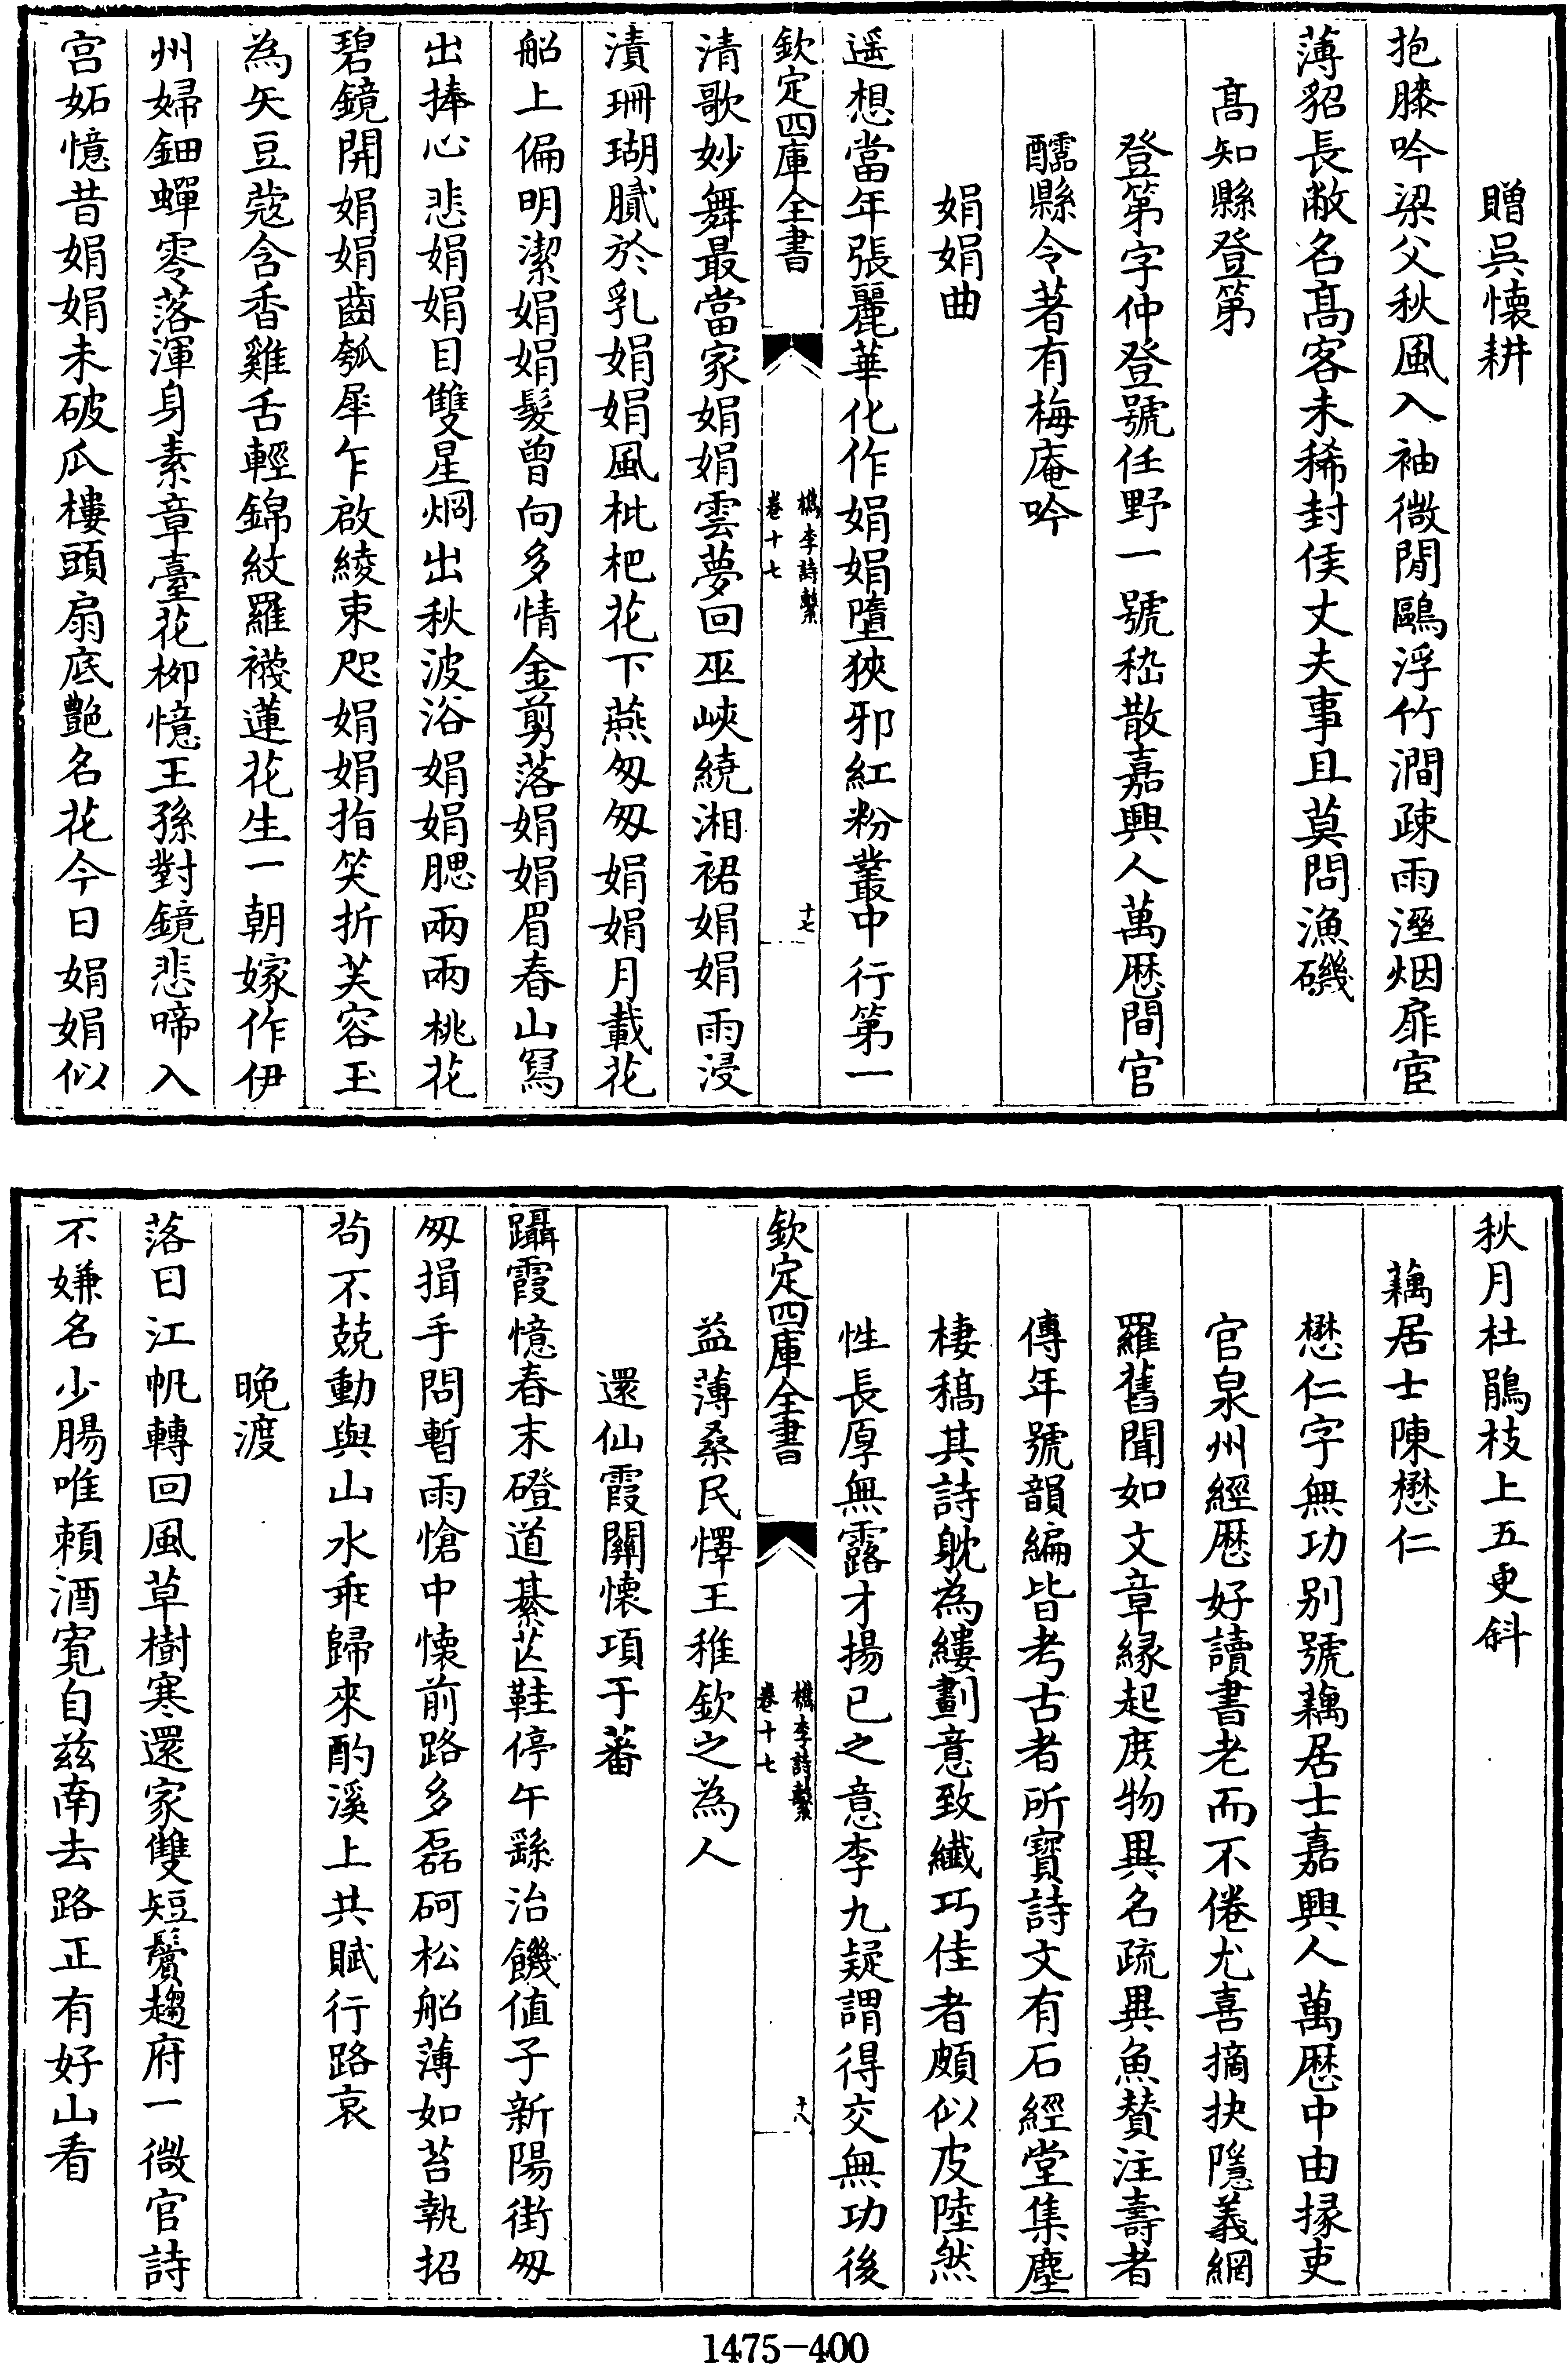 贈呉懐耕
抱膝吟梁父秋風入袖微閒鷗浮竹澗疎雨溼烟扉宦
薄貂長敝名髙客未稀封侯丈夫事且莫問漁磯
髙知縣登第
登第字仲登號任野一號嵇散嘉興人萬厯間官
醽縣令著有梅庵吟
娟娟曲
遥想當年張麗華化作娟娟墮狹邪紅粉叢中行第一
欽定四庫全書
檇李詩繫
卷十七
十七
清歌妙舞最當家娟娟雲夢回巫峽繞湘裙娟娟雨浸
漬珊瑚膩於乳娟娟風枇杷花下燕匆匆娟娟月載花
船上偏明潔娟娟髮曾向多情金剪落娟娟眉春山冩
出捧心悲娟娟目雙星烱出秋波浴娟娟腮兩兩桃花
碧鏡開娟娟齒瓠犀乍啟綾束咫娟娟指笑折芙容玉
為矢豆蔻含香雞舌輕錦紋羅襪蓮花生一朝嫁作伊
州婦鈿蟬零落渾身素章臺花栁憶王孫對鏡悲啼入
宫妬憶昔娟娟未破瓜樓頭扇底艷名花今日娟娟似
秋月杜鵑枝上五更斜
藕居士陳懋仁
懋仁字無功别號藕居士嘉興人萬厯中由掾吏
官泉州經厯好讀書老而不倦尤喜摘抉隱義網
羅舊聞如文章縁起庶物異名疏異魚賛注壽者
傳年號韻編皆考古者所寳詩文有石經堂集塵
棲稿其詩躭為縷劃意致纎巧佳者頗似皮陸然
性長厚無露才揚已之意李九疑謂得交無功後
欽定四庫全書
檇李詩繫
卷十七
十八
益薄桑民懌王稚欽之為人
還仙霞關懐項于蕃
躡霞憶春末磴道綦芒鞋停午繇治饑值子新陽街匆
匆揖手問暫雨愴中懐前路多磊砢松船薄如苔執招
茍不兢動與山水乖歸來酌溪上共賦行路哀
晚渡
落日江帆轉回風草樹寒還家雙短鬢趨府一微官詩
不嫌名少腸唯頼酒寛自兹南去路正有好山看
1475-400